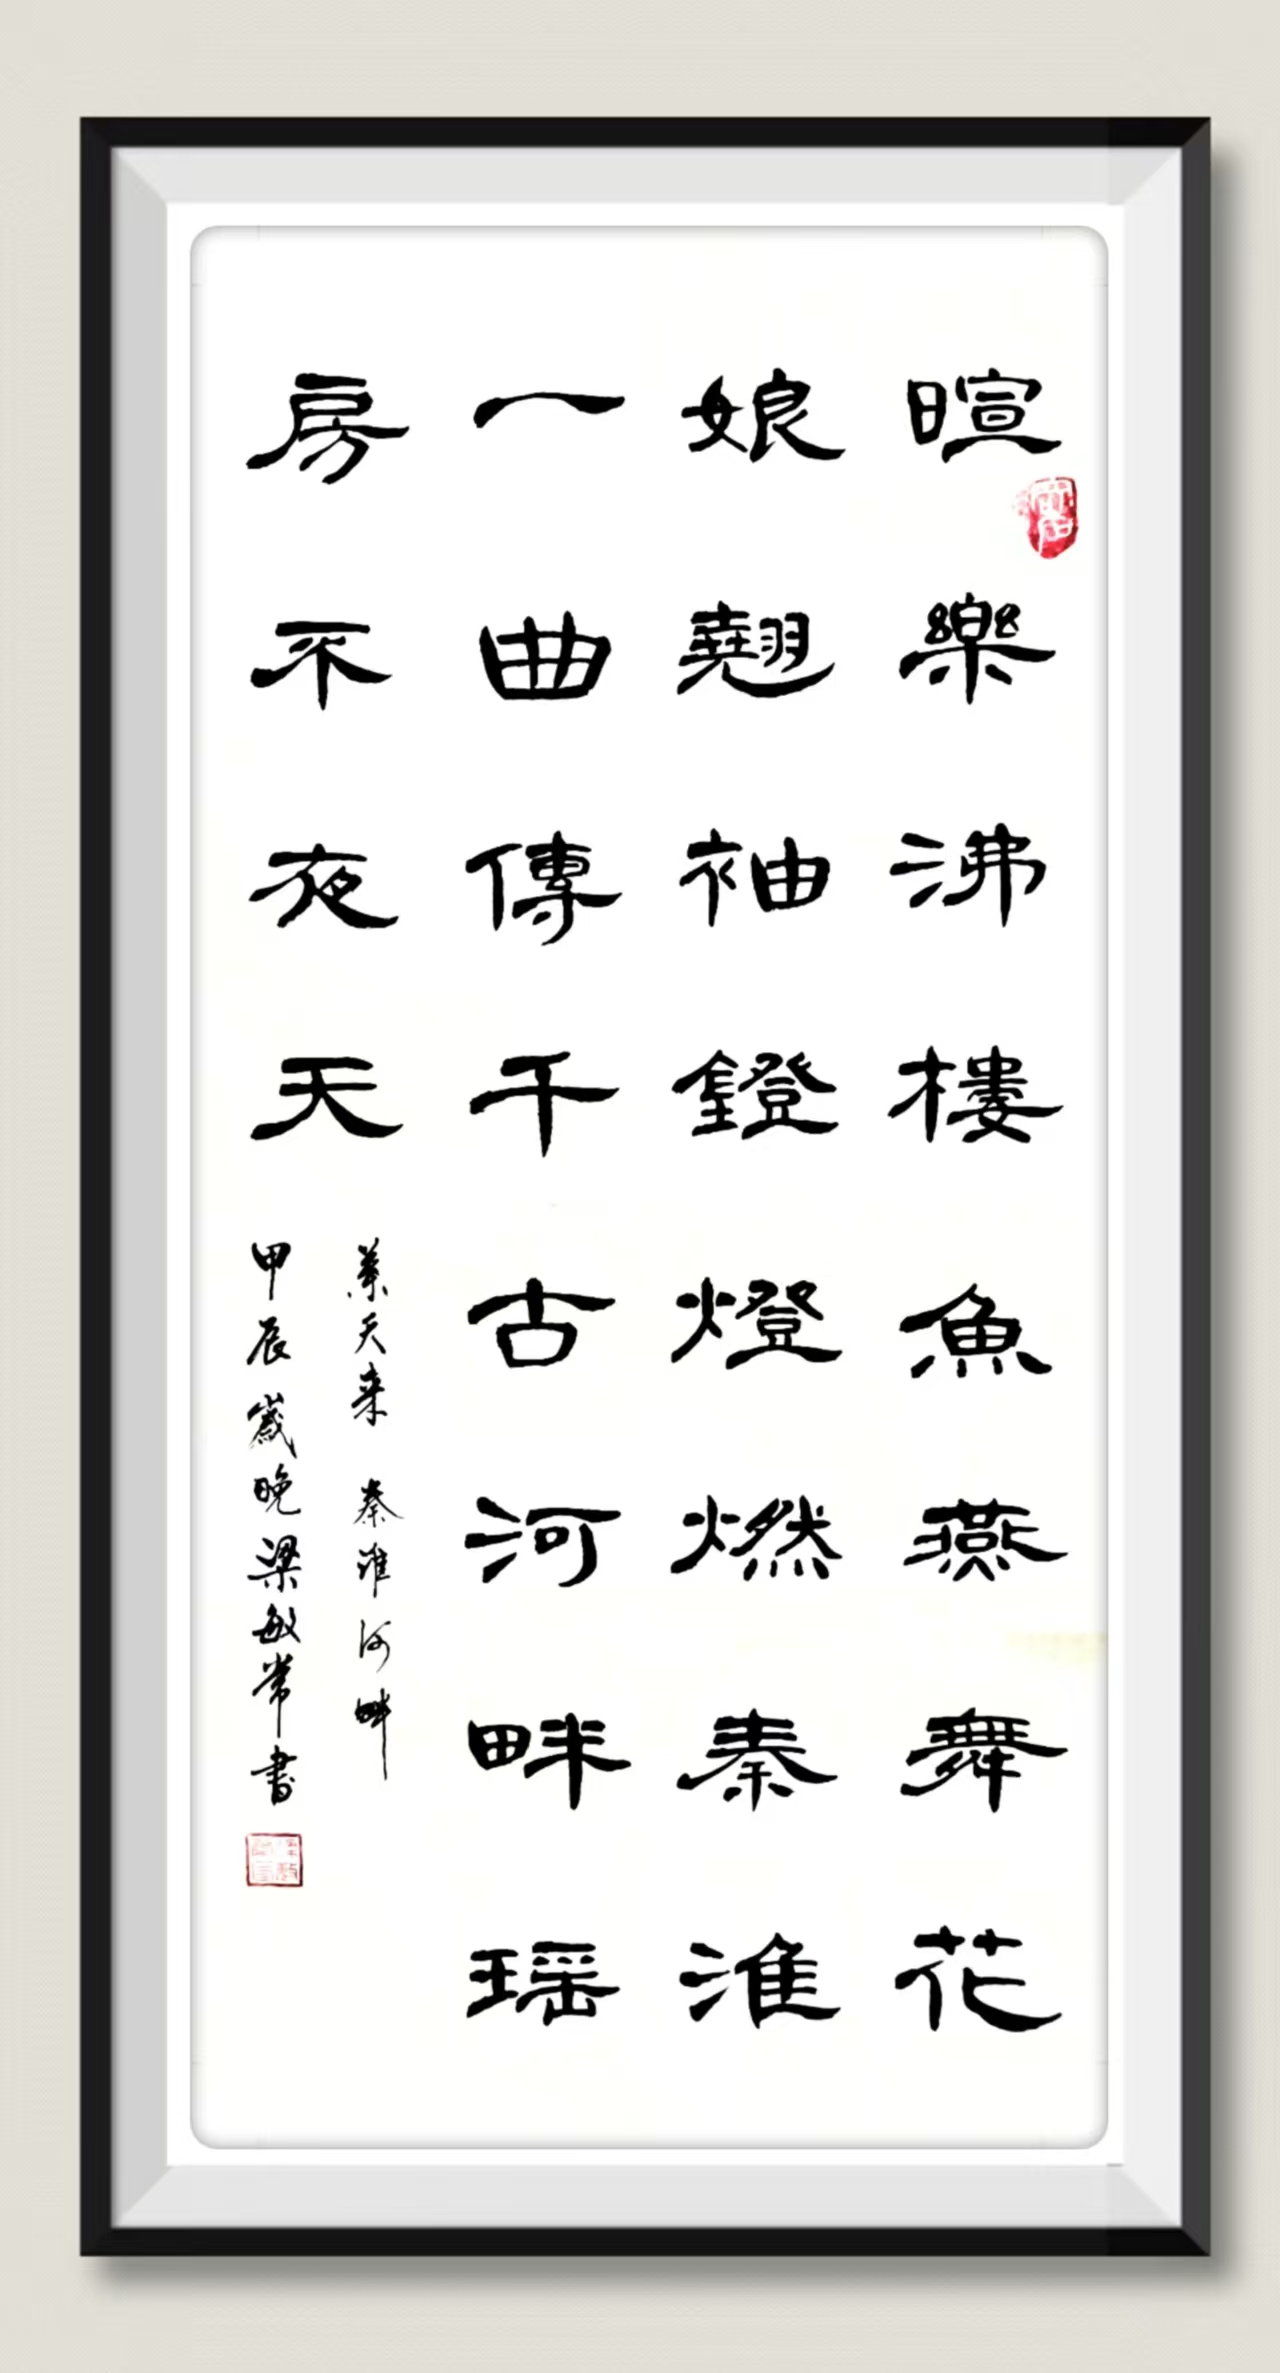 暄樂沸樓魚燕舞花
娘翹袖鐙燈燃秦淮
一曲傳千古河畔瑶
房不夜天
葉天来 秦淮河畔
甲辰歲晚梁敏常書